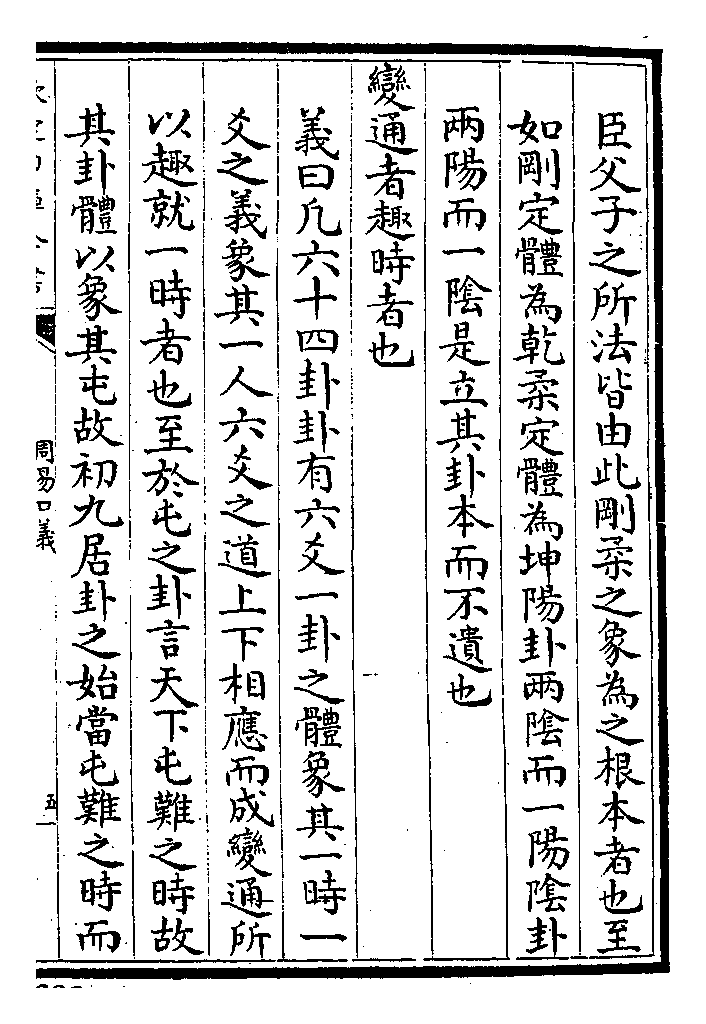 臣父子之所法皆由此剛柔之象為之根本者也至
如剛定體為乾柔定體為坤陽卦兩陰而一陽陰卦
兩陽而一陰是立其卦本而不遺也
變通者趣時者也
義曰凡六十四卦卦有六爻一卦之體象其一時一
爻之義象其一人六爻之道上下相應而成變通所
以趣就一時者也至於屯之卦言天下屯難之時故
其卦體以象其屯故初九居卦之始當屯難之時而
周易口義
五